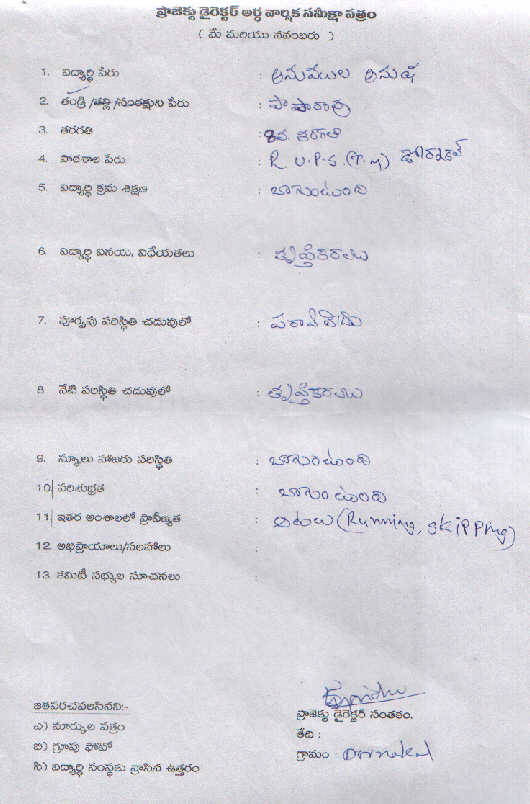 ప్రాజెక్టు డైరెక్టర్ అర్ధ వార్షిక సమీక్షా పత్రం
( మే మరియు నవంబరు )
1. విద్యార్థి పేరు : అనుష
2. తండ్రి /తల్లి/సంరక్షుని పేరు : పాపారావు
3. తరగతి : 8వ తరగతి
4. పాఠశాల పేరు : R U.P.S (T.M) డోర్నకల్
5. విద్యార్థి క్రమ శిక్షణ : బాగుంటుంది
6. విద్యార్థి వినయ, విధేయతలు : తృప్తికరాలు
7. పూర్వపు పరిస్థితి చదువులో : పరావలేదు
8. నేటి పరిస్థితి చదువులో : తృప్తికరాలు
9. స్కూలు హాజరు పరిస్థితి : బాగుంటుంది
10 పరిశుభ్రత : బాగుంటుంది
11 ఇతర అంశాలలో ప్రావీణ్యత : ఆటలు (Running, SKiPPing)
12. అభిప్రాయాలు/సలహాలు :
13. కమిటీ సభ్యుల సూచనలు
జతపరచవలసినవి:-
ప్రాజెక్టు డైరెక్టర్ సంతకం.
ఎ) మార్కుల పత్రం
తేది :
బి) గ్రూపు ఫోటో
గ్రామం Dornakal
సి) విద్యార్థి సంస్థకు వ్రాసిన ఉత్తరం